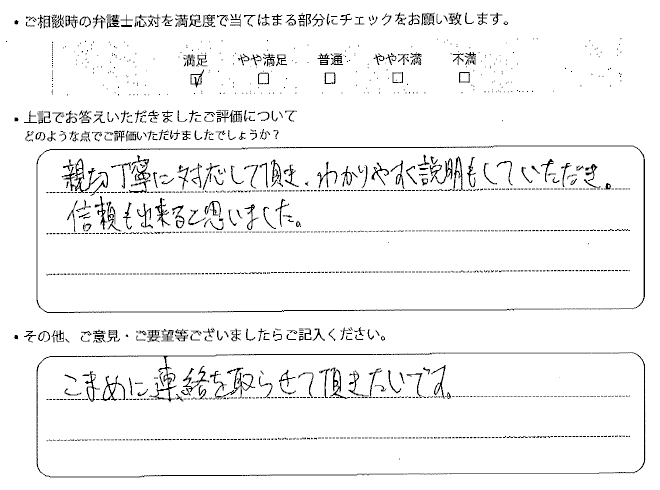 ・ご相談時の弁護士応対を満足度で当てはまる部分にチェックをお願い致します。
満足 やや満足 普通 やや不満 不満
☑ □ □ □ □
・上記でお答えいただきましたご評価について
どのような点でご評価いただけましたでしょうか？
親切丁寧に対応して頂き、わかりやすく説明もしていただき。
信頼も出来ると思いました。
・その他、ご意見・ご要望等ございましたらご記入ください。
こまめに連絡を取らせて頂きたいです。